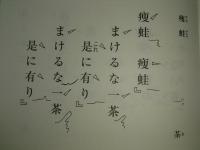 痩蛙
痩蛙
まけるな一茶
是に有り
痩蛙
まけるな一茶
是に有り
茶